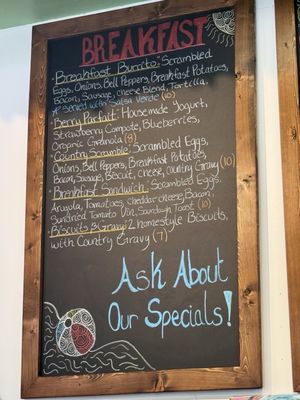 BREAKFAST
Breakfast Burrito: Scrambled
Eggs, Onions, Bell Peppers, Breakfast Potatoes,
Bacon, Sausage, Cheese Blend, Tortilla.
Served with Salsa Verde (10)
Berry Parfait: Housemade Yogurt,
Strawberry Compote, Blueberries,
Organic Granola (8)
Country Scramble: Scrambled Eggs,
Onions, Bell Peppers, Breakfast Potatoes,
Bacon, Sausage, Biscuit, Cheese, Country Gravy (10)
Breakfast Sandwich: Scrambled Eggs,
Arugula, Tomatoes, Cheddar cheese, Bacon,
Sundried Tomato Vin, Sourdough Toast (10)
Biscuits & Gravy: 2 homestyle Biscuits,
with Country Gravy (7)
Ask About
Our Specials!